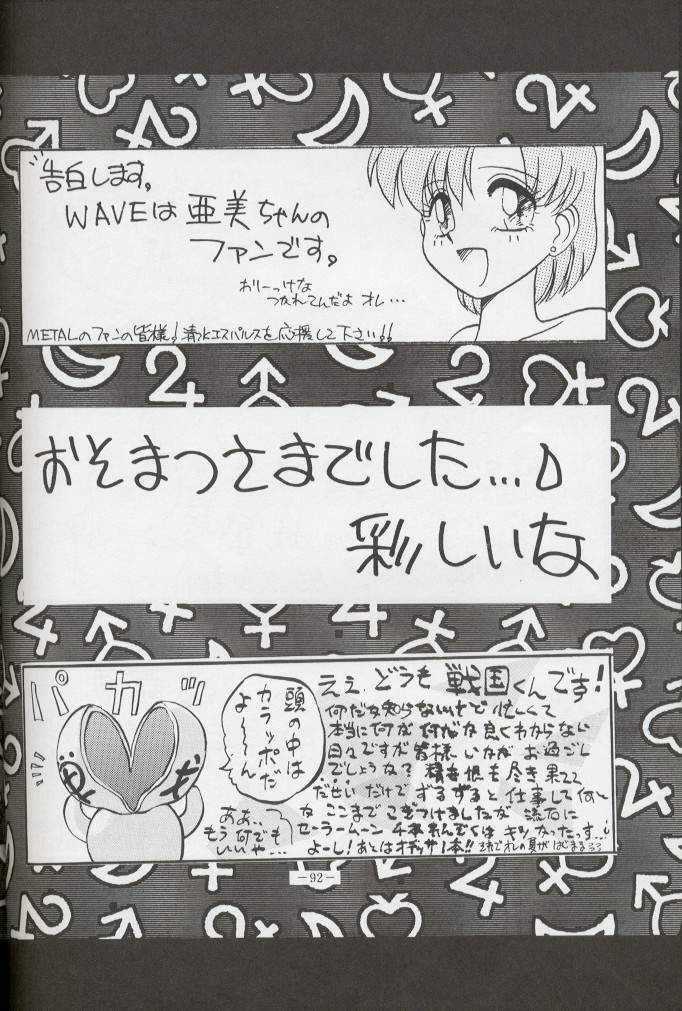 告白します。
WAVEは亜美ちゃんの
ファンです。
おりーっけな
つかれてんだよ オレ…
METALのファンの皆様!清水エスパルスを応援して下さい!!
おそまつさまでした…♪
彩しいな
パカッ
頭の中は
カラッポだ
よ〜〜ん
ああ…
もう何でも
いいや…
ええ、どうも戦国くんです!
何だか知らないけど忙しくて
本当に何が何だか良くわからない
日々ですが皆様いかがお過ごし
でしょうか?精も根も尽き果てて
だせいだけでずるずると仕事して何と
かここまでこぎつけましたが流石に
セーラームーン
はキツかったっす…!
よーし!あとは
1本!!
それでオレの夏がはじまる
-92-